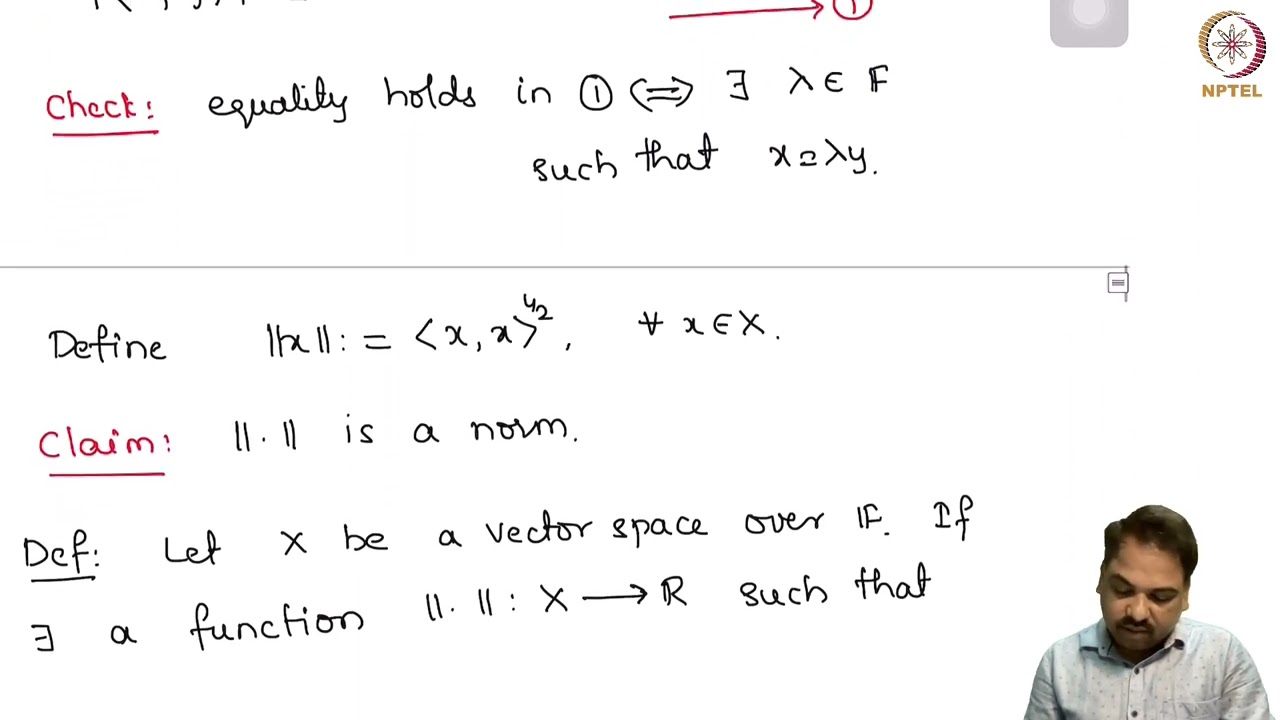 ①
NPTEL
Check: equality holds in ① ⟺ ∃ λ ∈ F
such that x = λy.
Define ||x|| := <x, x>^1/2, ∀ x ∈ X.
Claim: ||.|| is a norm.
Def: Let X be a vector space over F. If
∃ a function ||.|| : X ⟶ R such that